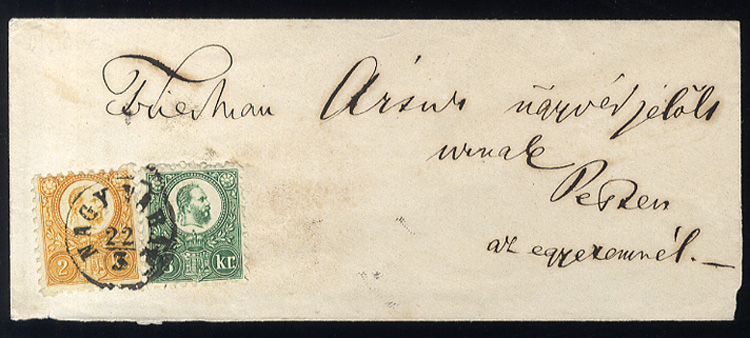 Friedman Arsur ügyvéd jelölt
urnak
Pesten
az egyetemnél. —
NAGY VÁRAD
22
3
2
3 kr.